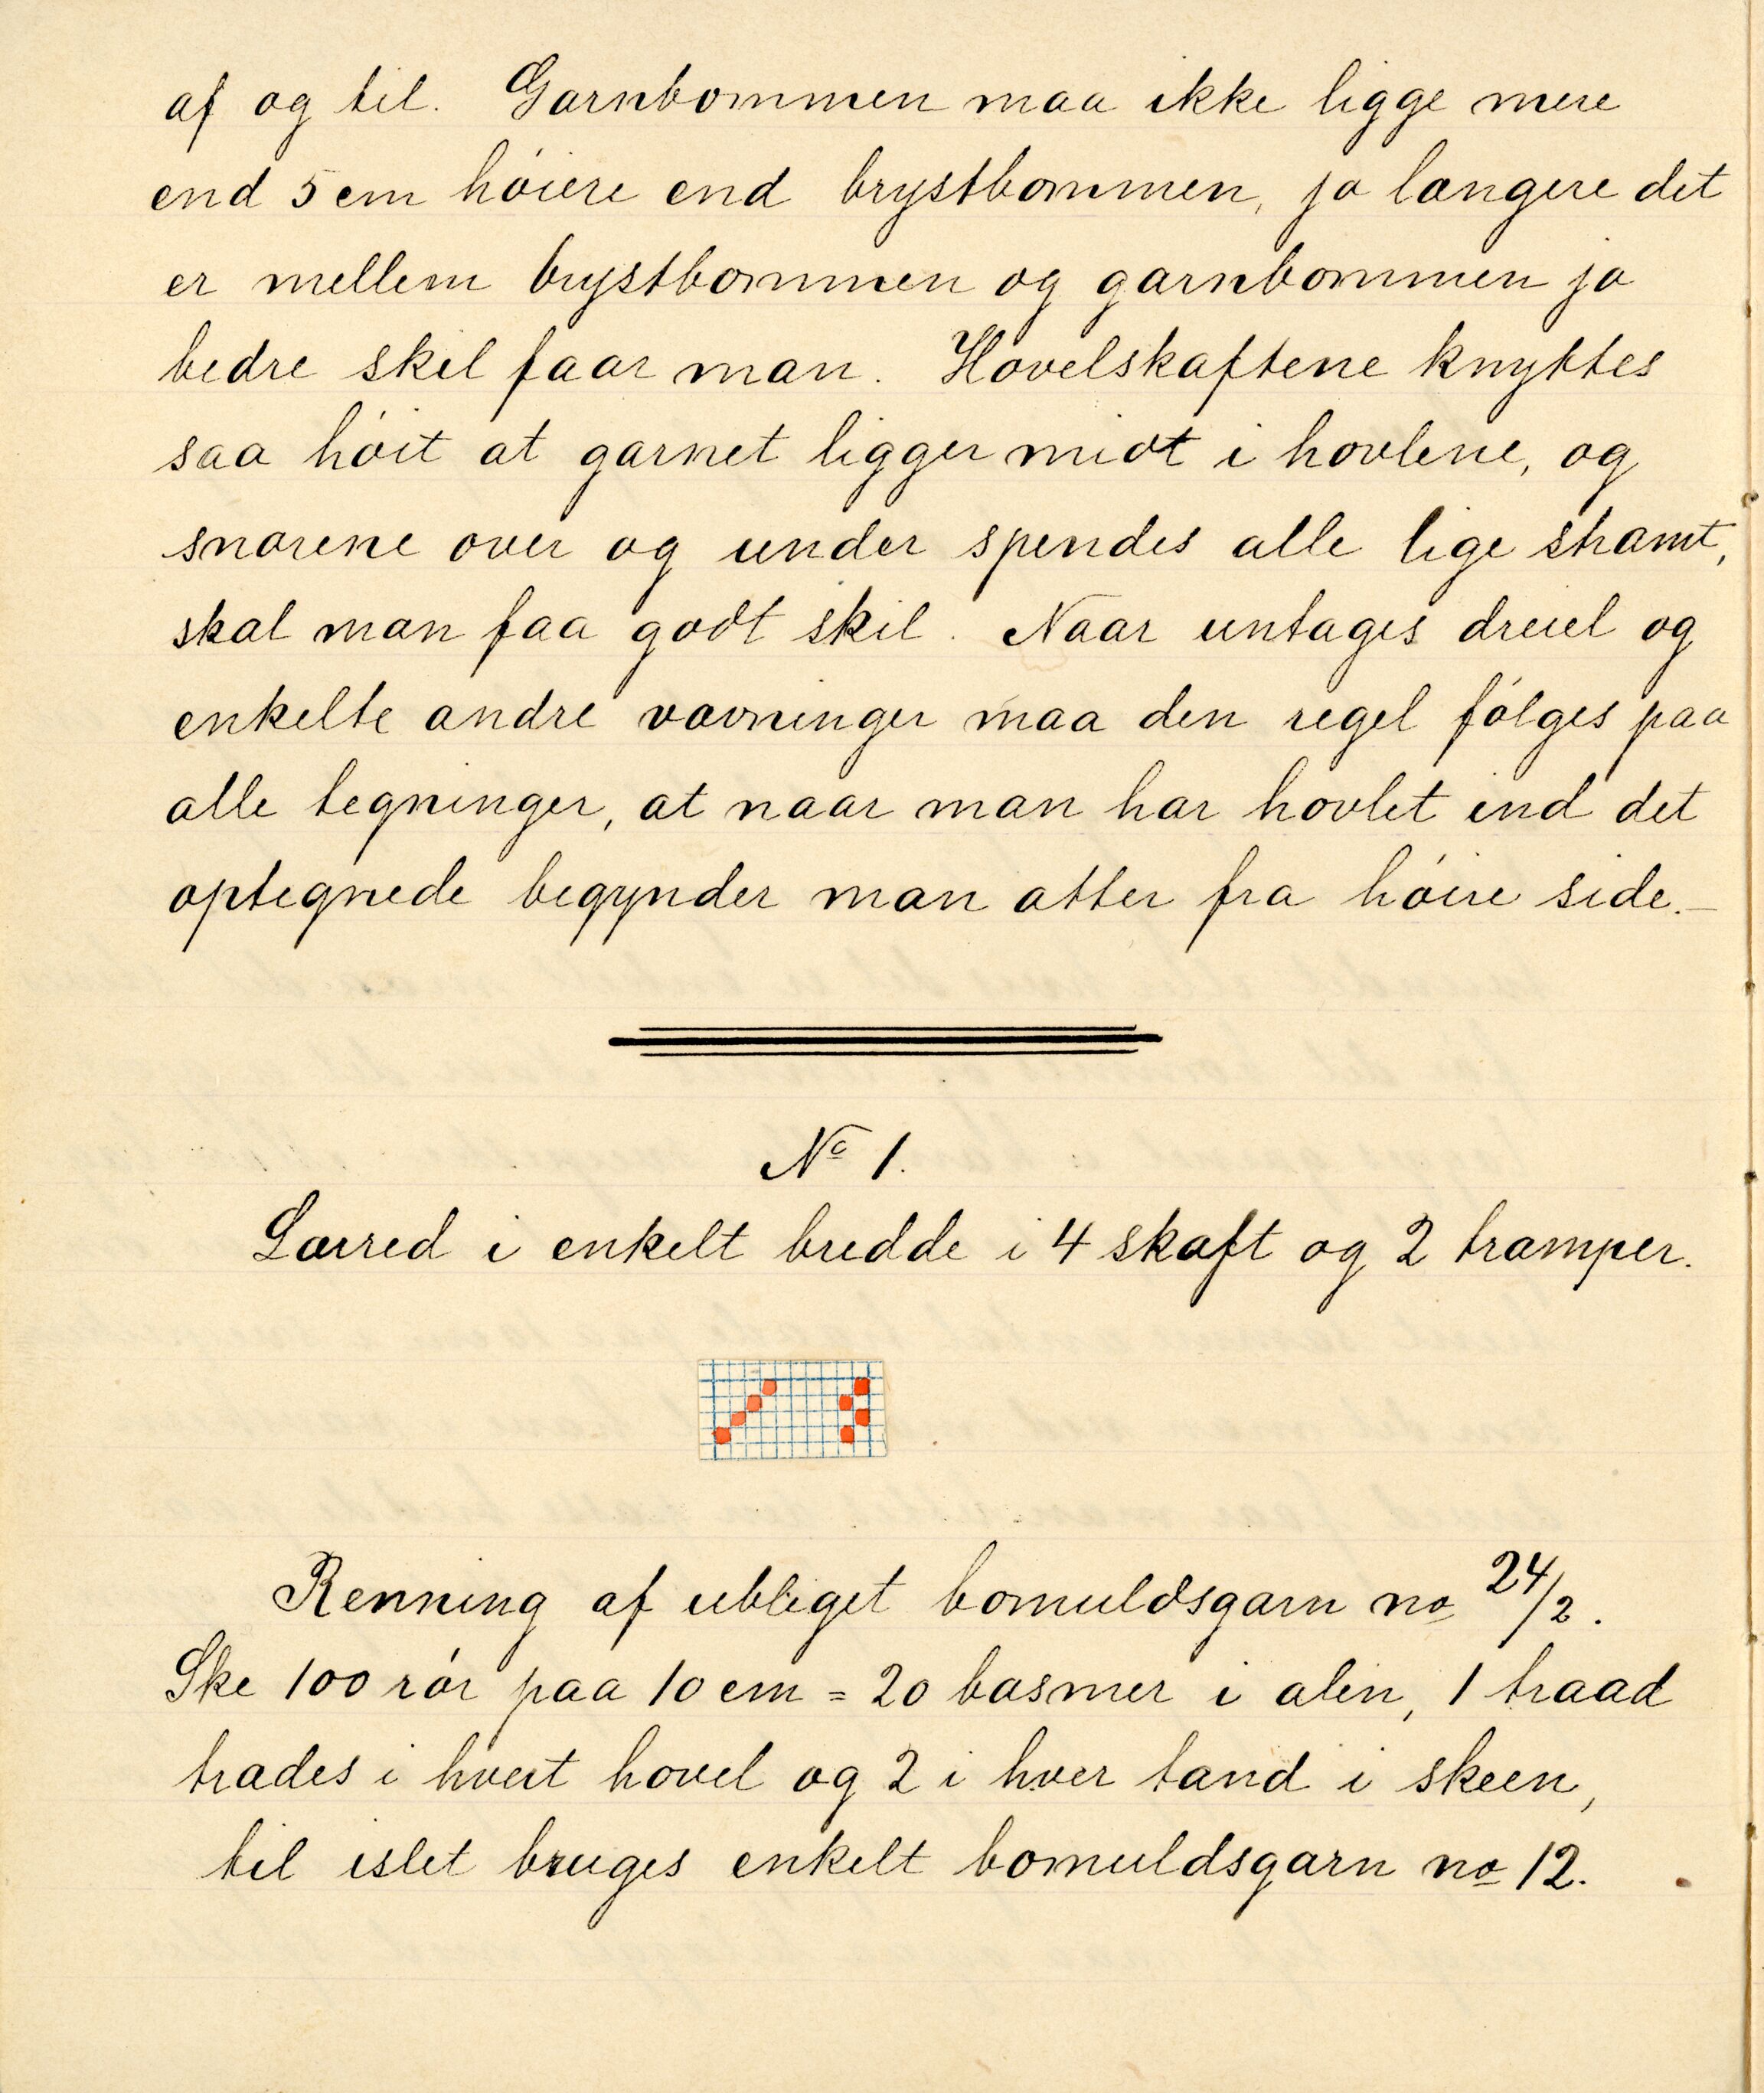 af og til. Garnbommen maa ikke ligge mere
end 5 cm høiere end brystbommen, jo længere det
er mellem brystbommen og garnbommen jo
bedre skil faar man. Hovelskaftene knyttes
saa høit at garnet ligger midt i hovlene, og
snorene over og under spendes alle lige stramt,
skal man faa godt skil. Naar untages dreiel og
enkelte andre vævninger maa den regel følges paa
alle tegninger, at naar man har hovlet ind det
optegnede begynder man atter fra høire side.—
No 1.
Lærred i enkelt bredde i 4 skaft og 2 tramper.
Renning af ubleget bomuldsgarn no 24/2.
Ske 100 rør paa 10 cm = 20 basmer i alen, 1 traad
trædes i hvert hovel og 2 i hver tand i skeen,
til islet bruges enkelt bomuldsgarn no 12.